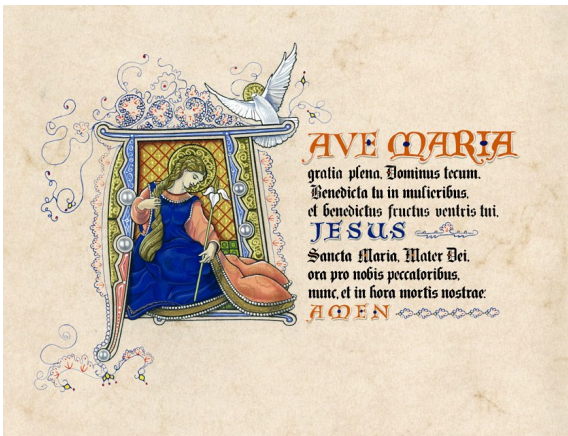 AVE MARIA
gratia plena, Dominus tecum.
Benedicta tu in mulieribus,
et benedictus fructus ventris tui,
JESUS
Sancta Maria, Mater Dei,
ora pro nobis peccatoribus,
nunc, et in hora mortis nostrae.
AMEN